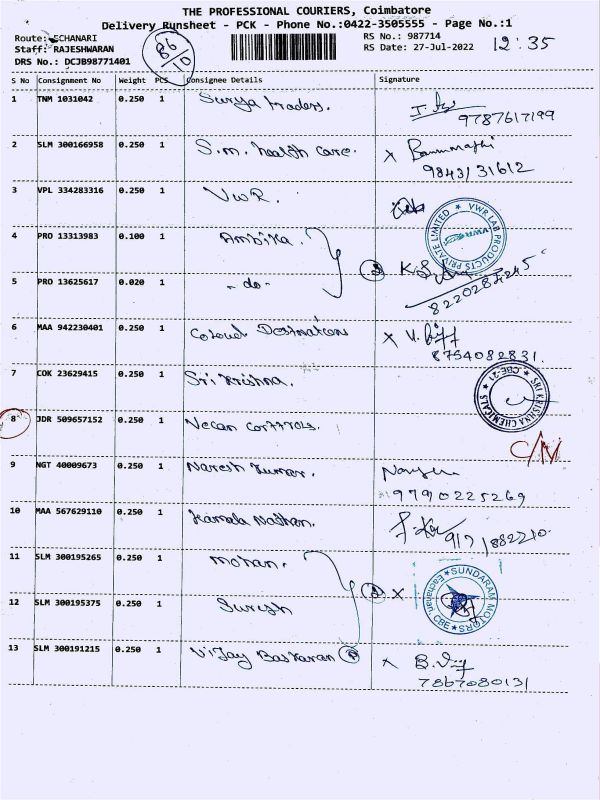 THE PROFESSIONAL COURIERS, Coimbatore
Delivery Runsheet - PCK - Phone No.:0422-3505555 - Page No.:1
Route: ECHANARI
RS No.: 987714
Staff: RAJESHWARAN
RS Date: 27-Jul-2022
12:35
DRS No.: DCJB98771401
86
10
S No Consignment No Weight PCS Consignee Details Signature
1 TNM 1031042 0.250 1 Surya traders.
9787617199
2 SLM 300166958 0.250 1 S.m. health care. x
98431 31612
3 VPL 334283316 0.250 1 VWR.
VWR LAB PRODUCTS PRIVATE LIMITED
4 PRO 13313983 0.100 1 Ambika. 2 K.S.
5 PRO 13625617 0.020 1 - do -
8220284245
6 MAA 942230401 0.250 1 Colour Destinations x V.
8754082831.
7 COK 23629415 0.250 1 Sri Krishna.
SRI KRISHNA CHEMICALS CBE-21
8 JDR 509657152 0.250 1 Necan controls.
C/N
9 NGT 40009673 0.250 1 Naresh Kumar.
9790225269
10 MAA 567629110 0.250 1 Kamala Nathan.
11 SLM 300195265 0.250 1 Mohan. 2 x
SUNDARAM MOTORS Eachanari CBE
12 SLM 300195375 0.250 1 Suresh
13 SLM 300191215 0.250 1 Vijay Baskaran x B.
7867080131